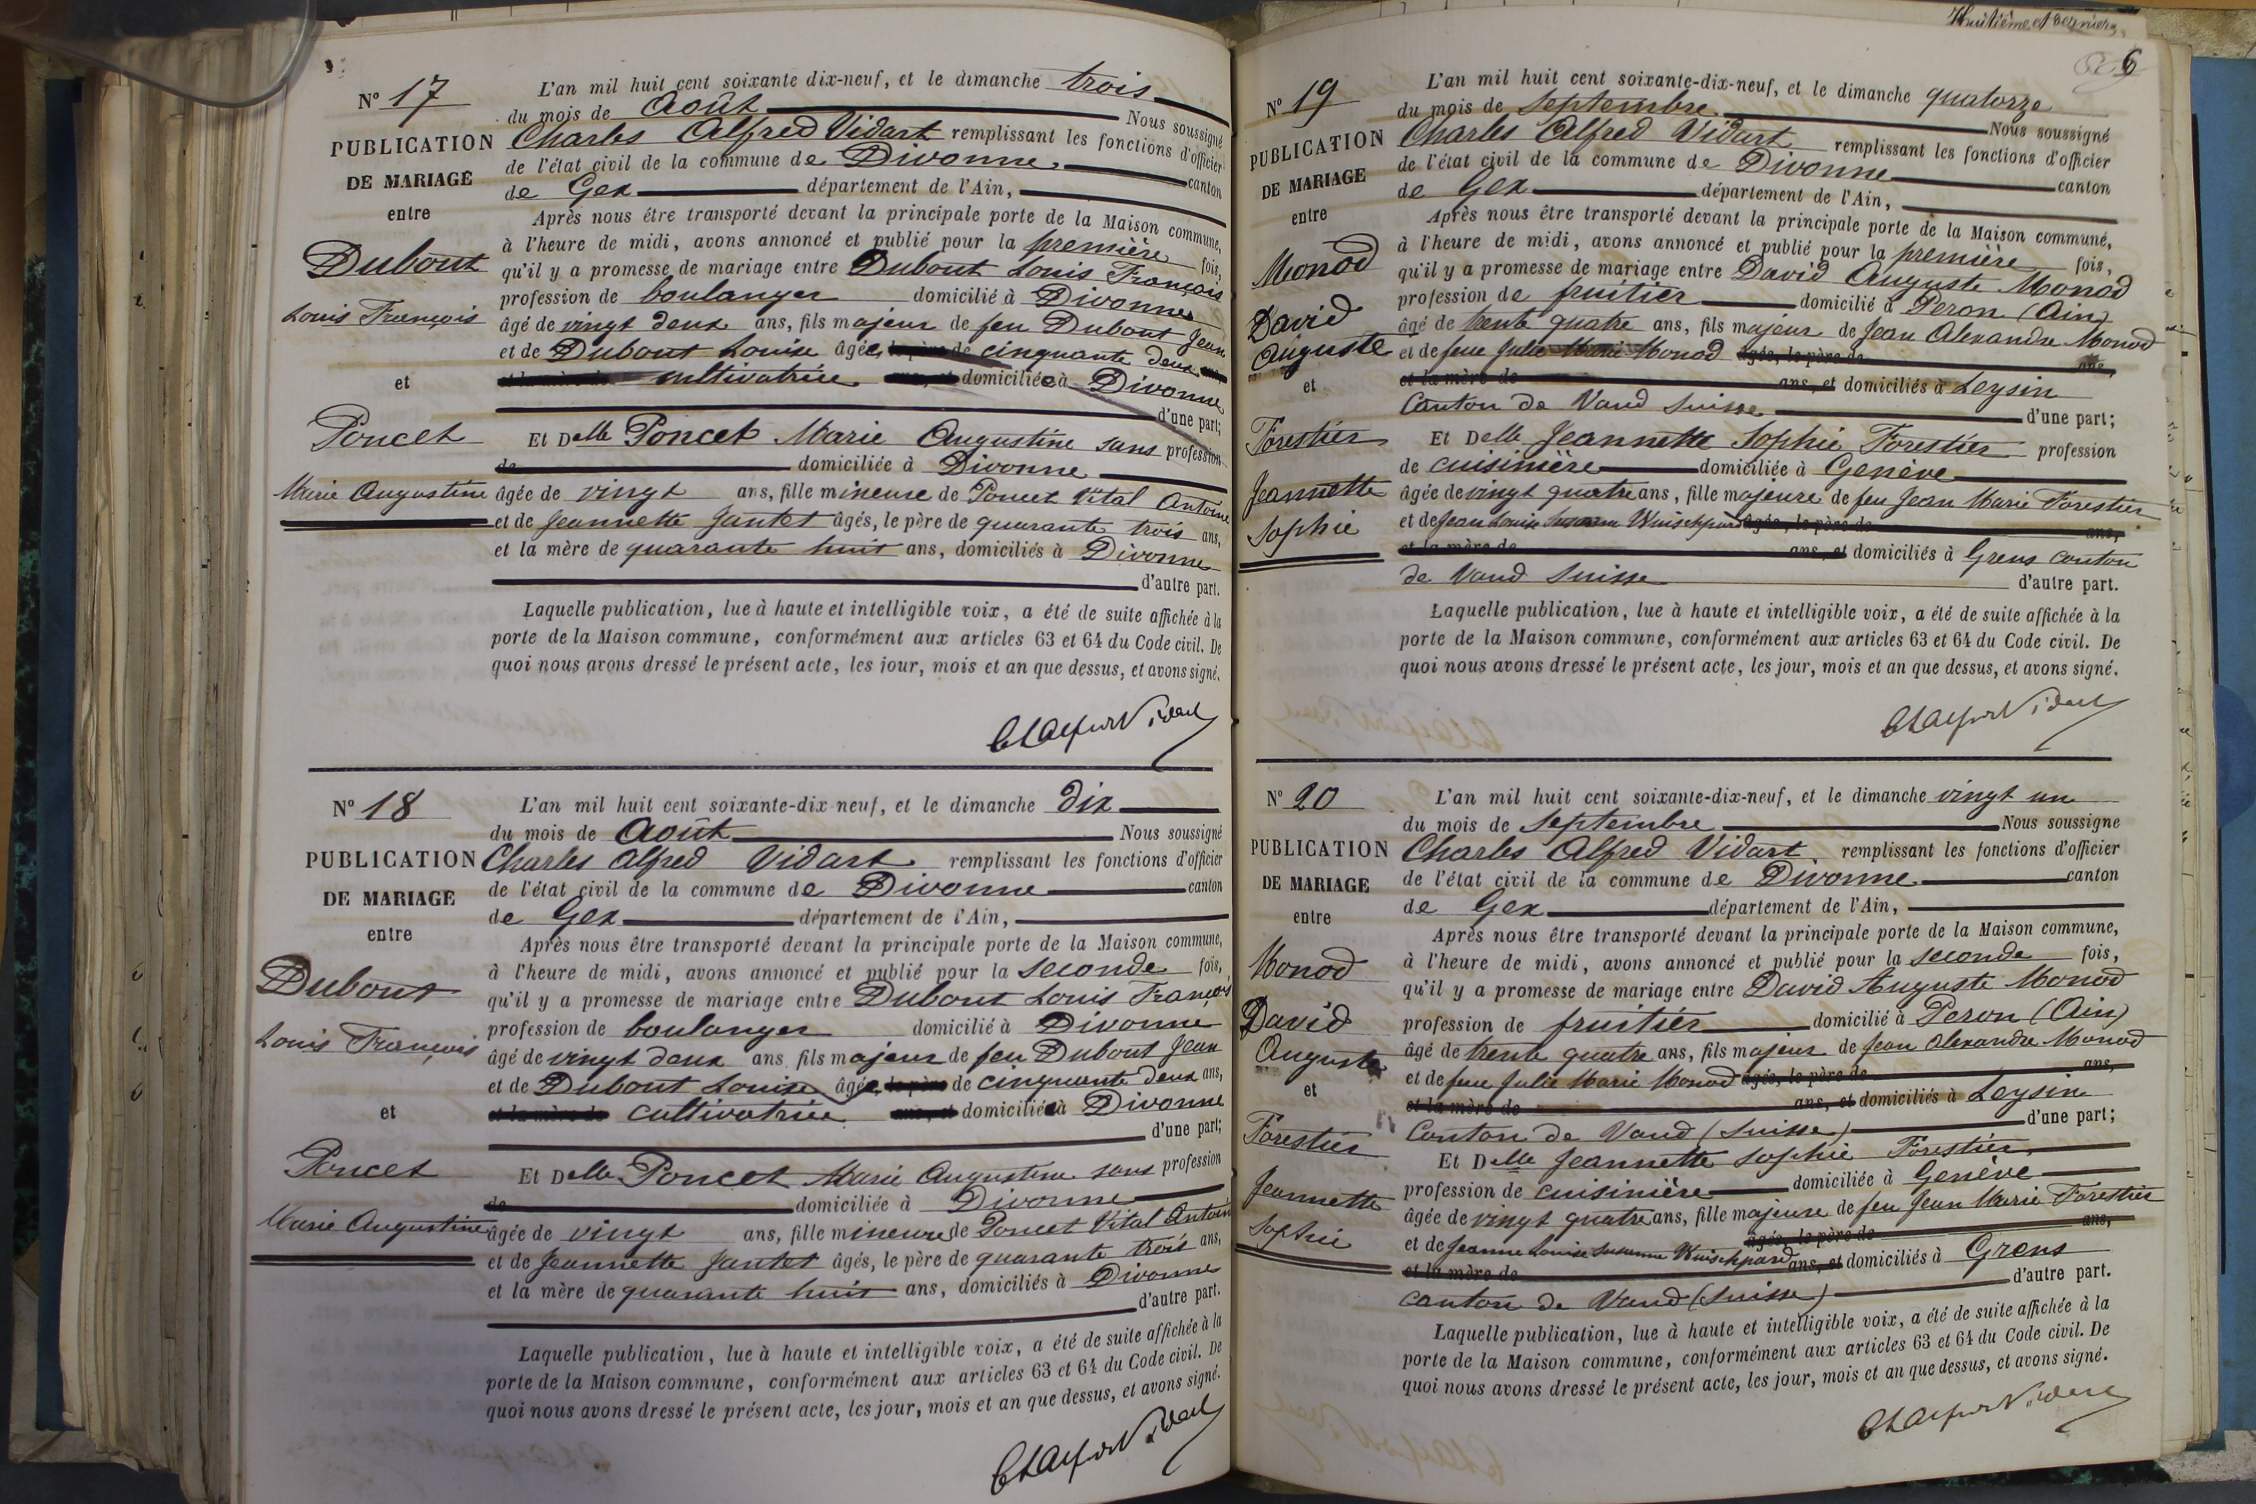 N° 17
PUBLICATION
DE MARIAGE
entre
Dubout
Louis François
et
Poncet
Marie Augustine
L'an mil huit cent soixante dix-neuf, et le dimanche trois
du mois de Août Nous soussigné
Charles Alfred Vidart remplissant les fonctions d'officier
de l'état civil de la commune de Divonne canton
de Gex département de l'Ain,
Après nous être transporté devant la principale porte de la Maison commune,
à l'heure de midi, avons annoncé et publié pour la première fois,
qu'il y a promesse de mariage entre Dubout Louis François
profession de boulanger domicilié à Divonne
âgé de vingt deux ans, fils majeur de feu Dubout Jean
et de Dubout Louise âgée, le père de cinquante deux ans,
et la mère de cultivatrice ans, et domiciliée à Divonne
d'une part;
Et Delle Poncet Marie Augustine sans profession
de domiciliée à Divonne
âgée de vingt ans, fille mineure de Poncet Vital Antoine
et de Jeannette Jantet âgés, le père de quarante trois ans,
et la mère de quarante huit ans, domiciliés à Divonne
d'autre part.
Laquelle publication, lue à haute et intelligible voix, a été de suite affichée à la
porte de la Maison commune, conformément aux articles 63 et 64 du Code civil. De
quoi nous avons dressé le présent acte, les jour, mois et an que dessus, et avons signé.
Ch Alfred Vidart
N° 18
PUBLICATION
DE MARIAGE
entre
Dubout
Louis François
et
Poncet
Marie Augustine
L'an mil huit cent soixante-dix-neuf, et le dimanche dix
du mois de Août Nous soussigné
Charles Alfred Vidart remplissant les fonctions d'officier
de l'état civil de la commune de Divonne canton
de Gex département de l'Ain,
Après nous être transporté devant la principale porte de la Maison commune,
à l'heure de midi, avons annoncé et publié pour la seconde fois,
qu'il y a promesse de mariage entre Dubout Louis François
profession de boulanger domicilié à Divonne
âgé de vingt deux ans fils majeur de feu Dubout Jean
et de Dubout Louise âgée, le père de cinquante deux ans,
et la mère de cultivatrice ans, et domiciliée à Divonne
d'une part;
Et Delle Poncet Marie Augustine sans profession
de domiciliée à Divonne
âgée de vingt ans, fille mineure de Poncet Vital Antoine
et de Jeannette Jantet âgés, le père de quarante trois ans,
et la mère de quarante huit ans, domiciliés à Divonne
d'autre part.
Laquelle publication, lue à haute et intelligible voix, a été de suite affichée à la
porte de la Maison commune, conformément aux articles 63 et 64 du Code civil. De
quoi nous avons dressé le présent acte, les jour, mois et an que dessus, et avons signé.
Ch Alfred Vidart
Huitième et dernier
6
N° 19
PUBLICATION
DE MARIAGE
entre
Monod
David
Auguste
et
Forestier
Jeannette
Sophie
L'an mil huit cent soixante-dix-neuf, et le dimanche quatorze
du mois de Septembre Nous soussigné
Charles Alfred Vidart remplissant les fonctions d'officier
de l'état civil de la commune de Divonne canton
de Gex département de l'Ain,
Après nous être transporté devant la principale porte de la Maison commune,
à l'heure de midi, avons annoncé et publié pour la première fois,
qu'il y a promesse de mariage entre David Auguste Monod
profession de fruitier domicilié à Peron (Ain)
âgé de trente quatre ans, fils majeur de Jean Alexandre Monod
et de feue Julie Marie Monod âgés, le père de ans,
et la mère de ans, et domiciliés à Leysin
Canton de Vaud Suisse d'une part;
Et Delle Jeannette Sophie Forestier profession
de cuisinière domiciliée à Genève
âgée de vingt quatre ans, fille majeure de feu Jean Marie Forestier
et de Jean Louise Susanne âgés, le père de ans,
et la mère de ans, et domiciliés à Grens canton
de Vaud Suisse d'autre part.
Laquelle publication, lue à haute et intelligible voix, a été de suite affichée à la
porte de la Maison commune, conformément aux articles 63 et 64 du Code civil. De
quoi nous avons dressé le présent acte, les jour, mois et an que dessus, et avons signé.
Ch Alfred Vidart
N° 20
PUBLICATION
DE MARIAGE
entre
Monod
David
Auguste
et
Forestier
Jeannette
Sophie
L'an mil huit cent soixante-dix-neuf, et le dimanche vingt un
du mois de Septembre Nous soussigne
Charles Alfred Vidart remplissant les fonctions d'officier
de l'état civil de la commune de Divonne canton
de Gex département de l'Ain,
Après nous être transporté devant la principale porte de la Maison commune,
à l'heure de midi, avons annoncé et publié pour la seconde fois,
qu'il y a promesse de mariage entre David Auguste Monod
profession de fruitier domicilié à Peron (Ain)
âgé de trente quatre ans, fils majeur de Jean Alexandre Monod
et de feue Julie Marie Monod âgés, le père de ans,
et la mère de ans, et domiciliés à Leysin
Canton de Vaud (Suisse) d'une part;
Et Delle Jeannette Sophie Forestier
profession de cuisinière domiciliée à Genève
âgée de vingt quatre ans, fille majeure de feu Jean Marie Forestier
et de Jeanne Louise Susanne âgés, le père de ans,
et la mère de ans, et domiciliés à Grens
canton de Vaud (Suisse) d'autre part.
Laquelle publication, lue à haute et intelligible voix, a été de suite affichée à la
porte de la Maison commune, conformément aux articles 63 et 64 du Code civil. De
quoi nous avons dressé le présent acte, les jour, mois et an que dessus, et avons signé.
Ch Alfred Vidart